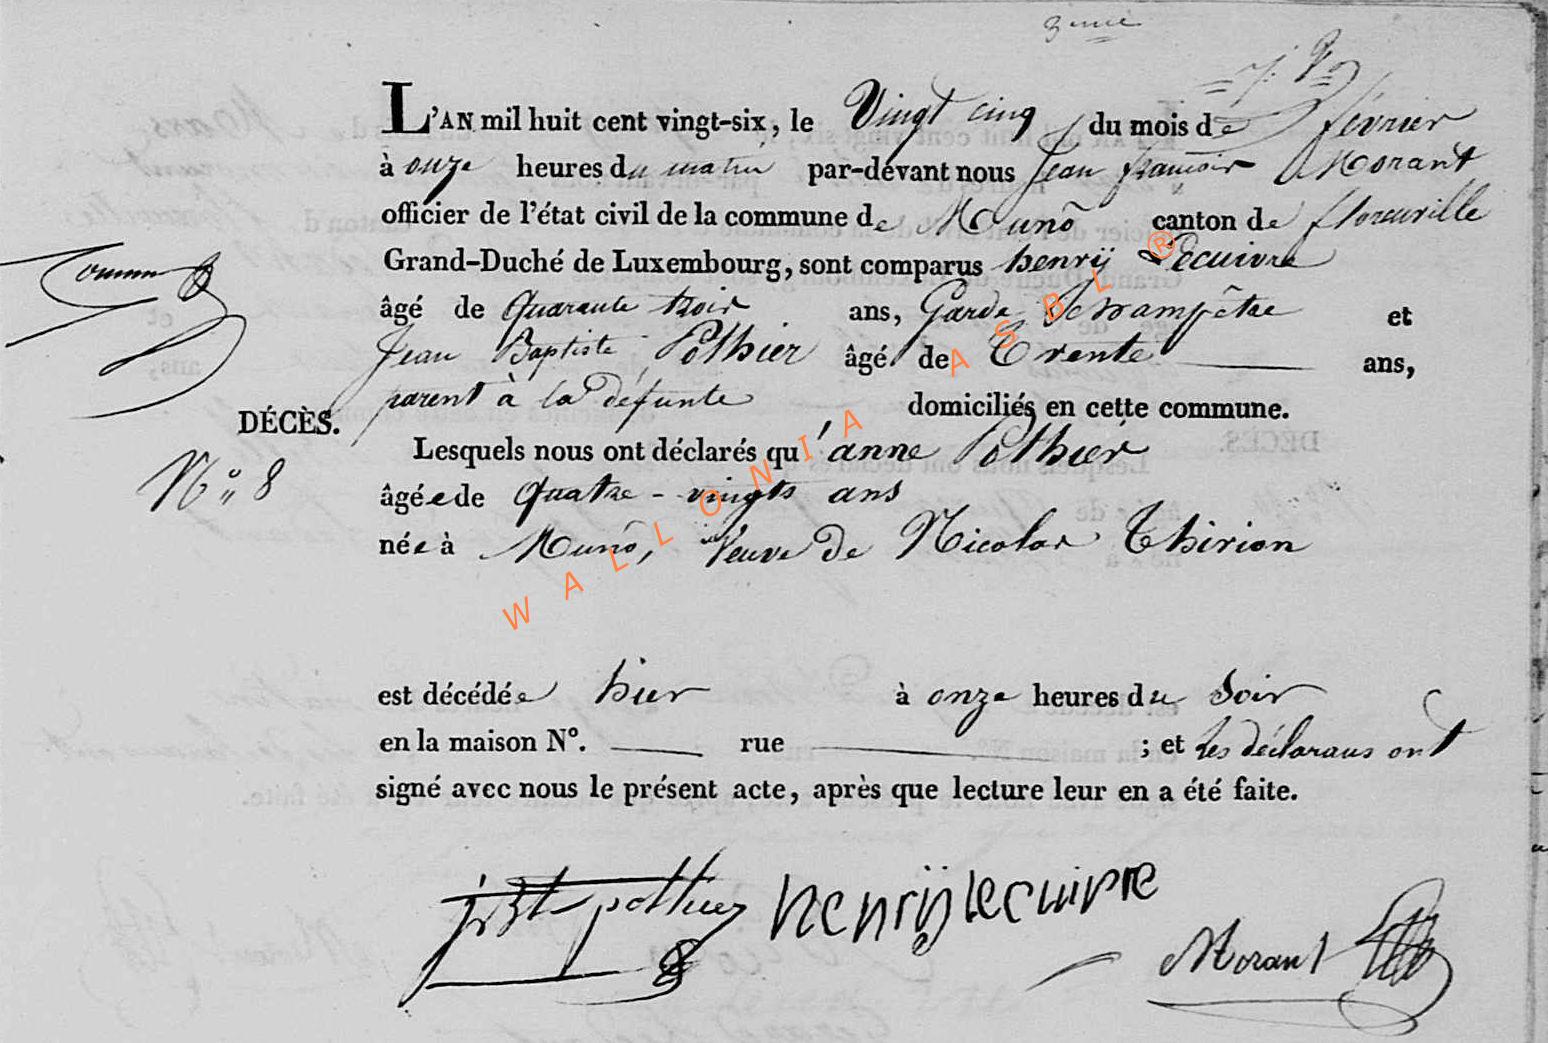 3eme
L'AN mil huit cent vingt-six, le Vingt cinq du mois de février
à onze heures du matin par-devant nous Jean françois Morant
officier de l'état civil de la commune de Muno canton de florenville
Grand-Duché de Luxembourg, sont comparus henrij Lecuivre
âgé de quarante trois ans, Garde Champêtre et
Jean Baptiste Pothier âgé de Trente ans,
parent à la défunte domiciliés en cette commune.
DÉCÈS.
Lesquels nous ont déclarés qu'anne Pothier
N° 8
âgée de quatre-vingts ans
née à Muno, Veuve de Nicolas Thirion
est décédée hier à onze heures du soir
en la maison N°. rue ; et les déclarans ont
signé avec nous le présent acte, après que lecture leur en a été faite.
j Bte pothier henrij lecuivre
Morant
WALLONIA ASBL ®